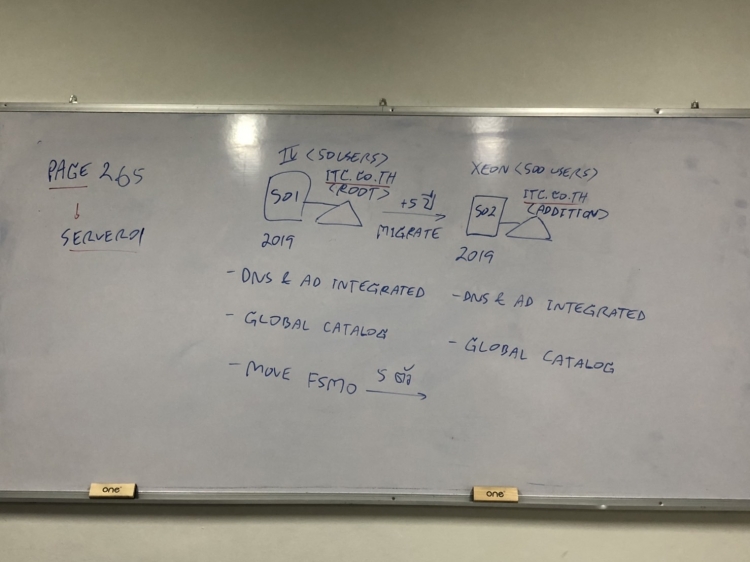 PAGE 265
SERVER01
IV <50USERS>
ITC.CO.TH
<ROOT>
S01
2019
+5 ปี
MIGRATE
XEON <500 USERS>
ITC.CO.TH
<ADDITION>
S02
2019
- DNS & AD INTEGRATED
- GLOBAL CATALOG
- MOVE FSMO 5 ตัว
- DNS & AD INTEGRATED
- GLOBAL CATALOG
one
one